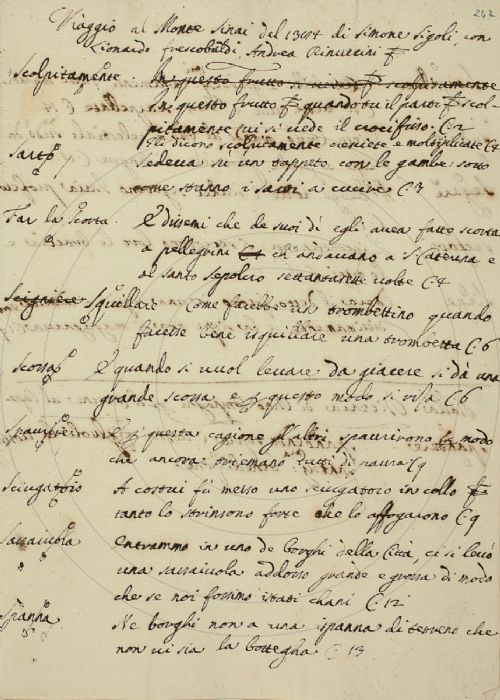 242
Viaggio al Monte Sinai del 1384 di Simone Sigoli, con
Lionardo Frescobaldi Andrea Rinuccini
Scolpitamente. In questo frutto si vede scolpitamente
In questo frutto quando tu il parti scol-
pitamente vi si vede il crocifisso. C. 2
gli dicono scolpitamente crescite e moltiplicate C4
Sarto Sedeva su un tappeto con le gambe sotto
come stanno i sarti a cucire C. 3
Far la Scorta. E dissemi che de suoi dì egli avea fatte scorta
a pellegrini C4 ch andavano a S. Caterina e
al santo Sepolcro settantasette volte C. 4
Squillare Come facesse un trombettino quando
facesse bene isquillare una trombetta C. 6
Scossa E quando si vuol levare da giacere si dà una
grande scossa e questo modo si rissa C. 6
Spaurire E questa cagione gl'altri spaurirono modo
che ancora triemano tutti di paura C. 9
Sciugatoio A costui fù messo uno sciugatoio in collo
tanto lo strinsono forte che lo affogarono C. 9
Sassaiuola Entrammo in uno de borghi della Città, ci si levò
una sassaiuola addosso grande e grossa di modo
che se noi fossimo istati chani C. 12
Spanna Ne borghi non a una ispanna di terreno che
non vi sia la bottegha C. 13